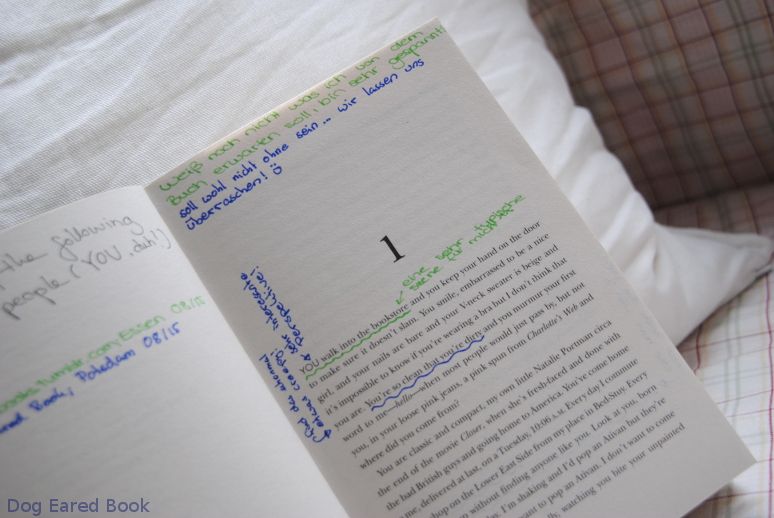 the following
people (YOU, duh!)
.tumblr.com, Essen 08/15
Book, Potsdam 08/15
Weiß noch nicht was ich von dem
Buch erwarten soll, bin sehr gespannt!
soll wohl nicht ohne sein... wir lassen uns
überraschen! ☺
1
eine sehr typische
sehr interessante
perspektive...
etwas creepy!
YOU walk into the bookstore and you keep your hand on the door
to make sure it doesn't slam. You smile, embarrassed to be a nice
girl, and your nails are bare and your V-neck sweater is beige and
it's impossible to know if you're wearing a bra but I don't think that
you are. You're so clean that you're dirty and you murmur your first
word to me—hello—when most people would just pass by, but not
you, in your loose pink jeans, a pink spun from Charlotte's Web and
where did you come from?
You are classic and compact, my own little Natalie Portman circa
the end of the movie Closer, when she's fresh-faced and done with
the bad British guys and going home to America. You've come home
me, delivered at last, on a Tuesday, 10:06 A.M. Every day I commute
shop on the Lower East Side from my place in Bed-Stuy. Every
without finding anyone like you. Look at you, born
I'm shaking and I'd pop an Ativan but they're
want to pop an Ativan. I don't want to come
watching you bite your unpainted
Dog Eared Book